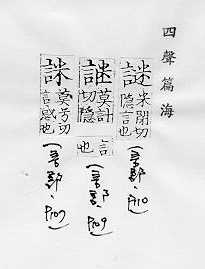 四聲篇海
謎
米閉切
隱言也
(言部, P110)
謎
莫計
切隱
言也
(言部, P109)
詸
莫兮切
言惑也
(言部, P107)